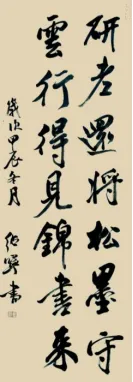 研老還將松墨守
雲行得見錦書來
歲次甲辰冬月
紹寧書